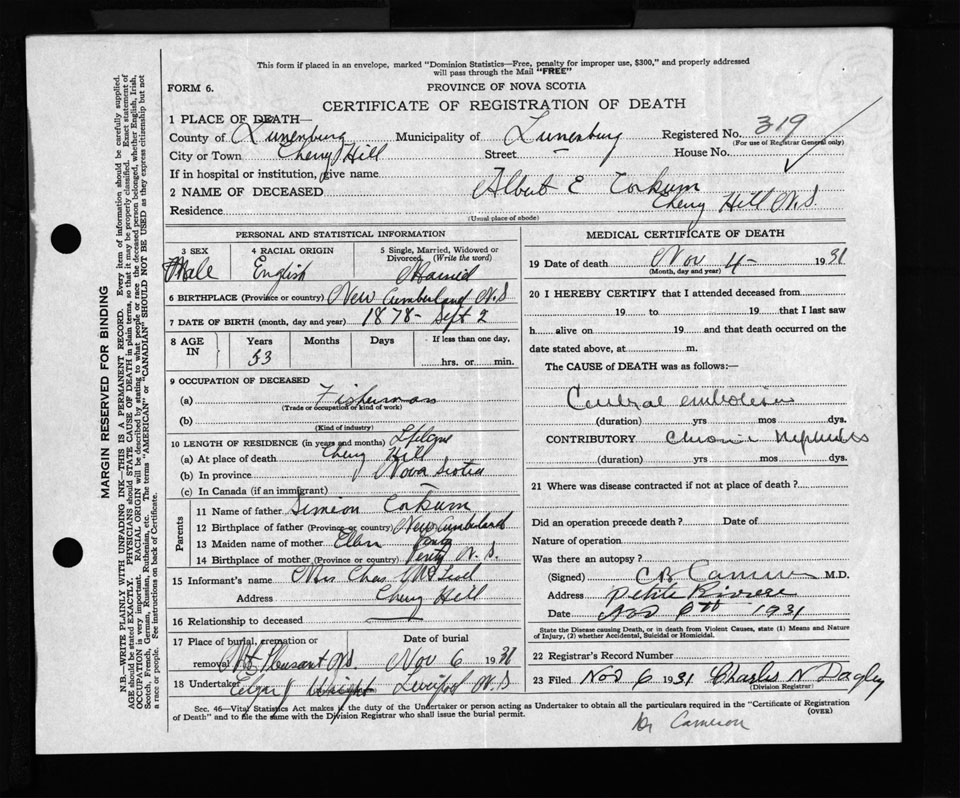 This form if placed in an envelope, marked "Dominion Statistics—Free, penalty for improper use, $300," and properly addressed
will pass through the Mail "FREE"
FORM 6.
PROVINCE OF NOVA SCOTIA
CERTIFICATE OF REGISTRATION OF DEATH
1 PLACE OF DEATH—
County of Lunenburg Municipality of Lunenburg Registered No. 319
(For use of Registrar General only)
City or Town Cherry Hill Street — House No.
If in hospital or institution, give name
2 NAME OF DECEASED Albert E Corkum
Residence Cherry Hill N.S.
(Usual place of abode)
PERSONAL AND STATISTICAL INFORMATION
3 SEX 4 RACIAL ORIGIN 5 Single, Married, Widowed or
Divorced. (Write the word)
Male English Married
6 BIRTHPLACE (Province or country) New Cumberland N.S
7 DATE OF BIRTH (month, day and year) 1878- Sept 2
8 AGE IN Years Months Days If less than one day,
53 hrs. or min.
9 OCCUPATION OF DECEASED
(a) Fisherman
(Trade or occupation or kind of work)
(b)
(Kind of industry)
10 LENGTH OF RESIDENCE (in years and months)
(a) At place of death Cherry Hill
(b) In province Nova Scotia
(c) In Canada (if an immigrant)
Parents
11 Name of father Simeon Corkum
12 Birthplace of father (Province or country) New Cumberland
13 Maiden name of mother Ellen
14 Birthplace of mother (Province or country) N.S.
15 Informant's name Mrs Chas McLeod
Address Cherry Hill
16 Relationship to deceased
17 Place of burial, cremation or Date of burial
removal Mt Pleasant NS Nov 6 1931
18 Undertaker Edgar J Liverpool N.S
MEDICAL CERTIFICATE OF DEATH
19 Date of death Nov 4- 1931
(Month, day and year)
20 I HEREBY CERTIFY that I attended deceased from
19 to 19 that I last saw
h alive on 19 and that death occurred on the
date stated above, at m.
The CAUSE of DEATH was as follows:—
Cerebral embolism
(duration) yrs mos dys.
CONTRIBUTORY Chronic Nephritis
(duration) yrs mos dys.
21 Where was disease contracted if not at place of death?
Did an operation precede death? Date of
Nature of operation
Was there an autopsy?
(Signed) C B Cameron M.D.
Address Petite Riviere
Date Nov 6th 1931
State the Disease causing Death, or in death from Violent Causes, state (1) Means and Nature
of Injury, (2) whether Accidental, Suicidal or Homicidal.
22 Registrar's Record Number
23 Filed Nov 6 1931 Charles N Dagley
(Division Registrar)
Sec. 46—Vital Statistics Act makes it the duty of the Undertaker or person acting as Undertaker to obtain all the particulars required in the "Certificate of Registration
of Death" and to file the same with the Division Registrar who shall issue the burial permit.
(OVER)
Dr Cameron
MARGIN RESERVED FOR BINDING
N.B.—WRITE PLAINLY WITH UNFADING INK—THIS IS A PERMANENT RECORD. Every item of information should be carefully supplied.
AGE should be stated EXACTLY. PHYSICIANS should STATE CAUSE OF DEATH in plain terms, so that it may be properly classified. Exact statement of
OCCUPATION is very important. RACIAL ORIGIN will be described by stating to what people or race the deceased person belonged, whether English, Irish,
Scotch, French, German, Russian, Ruthenian, etc. The terms "AMERICAN" or "CANADIAN" SHOULD NOT BE USED as they express citizenship but not
a race or people. See instructions on back of Certificate.